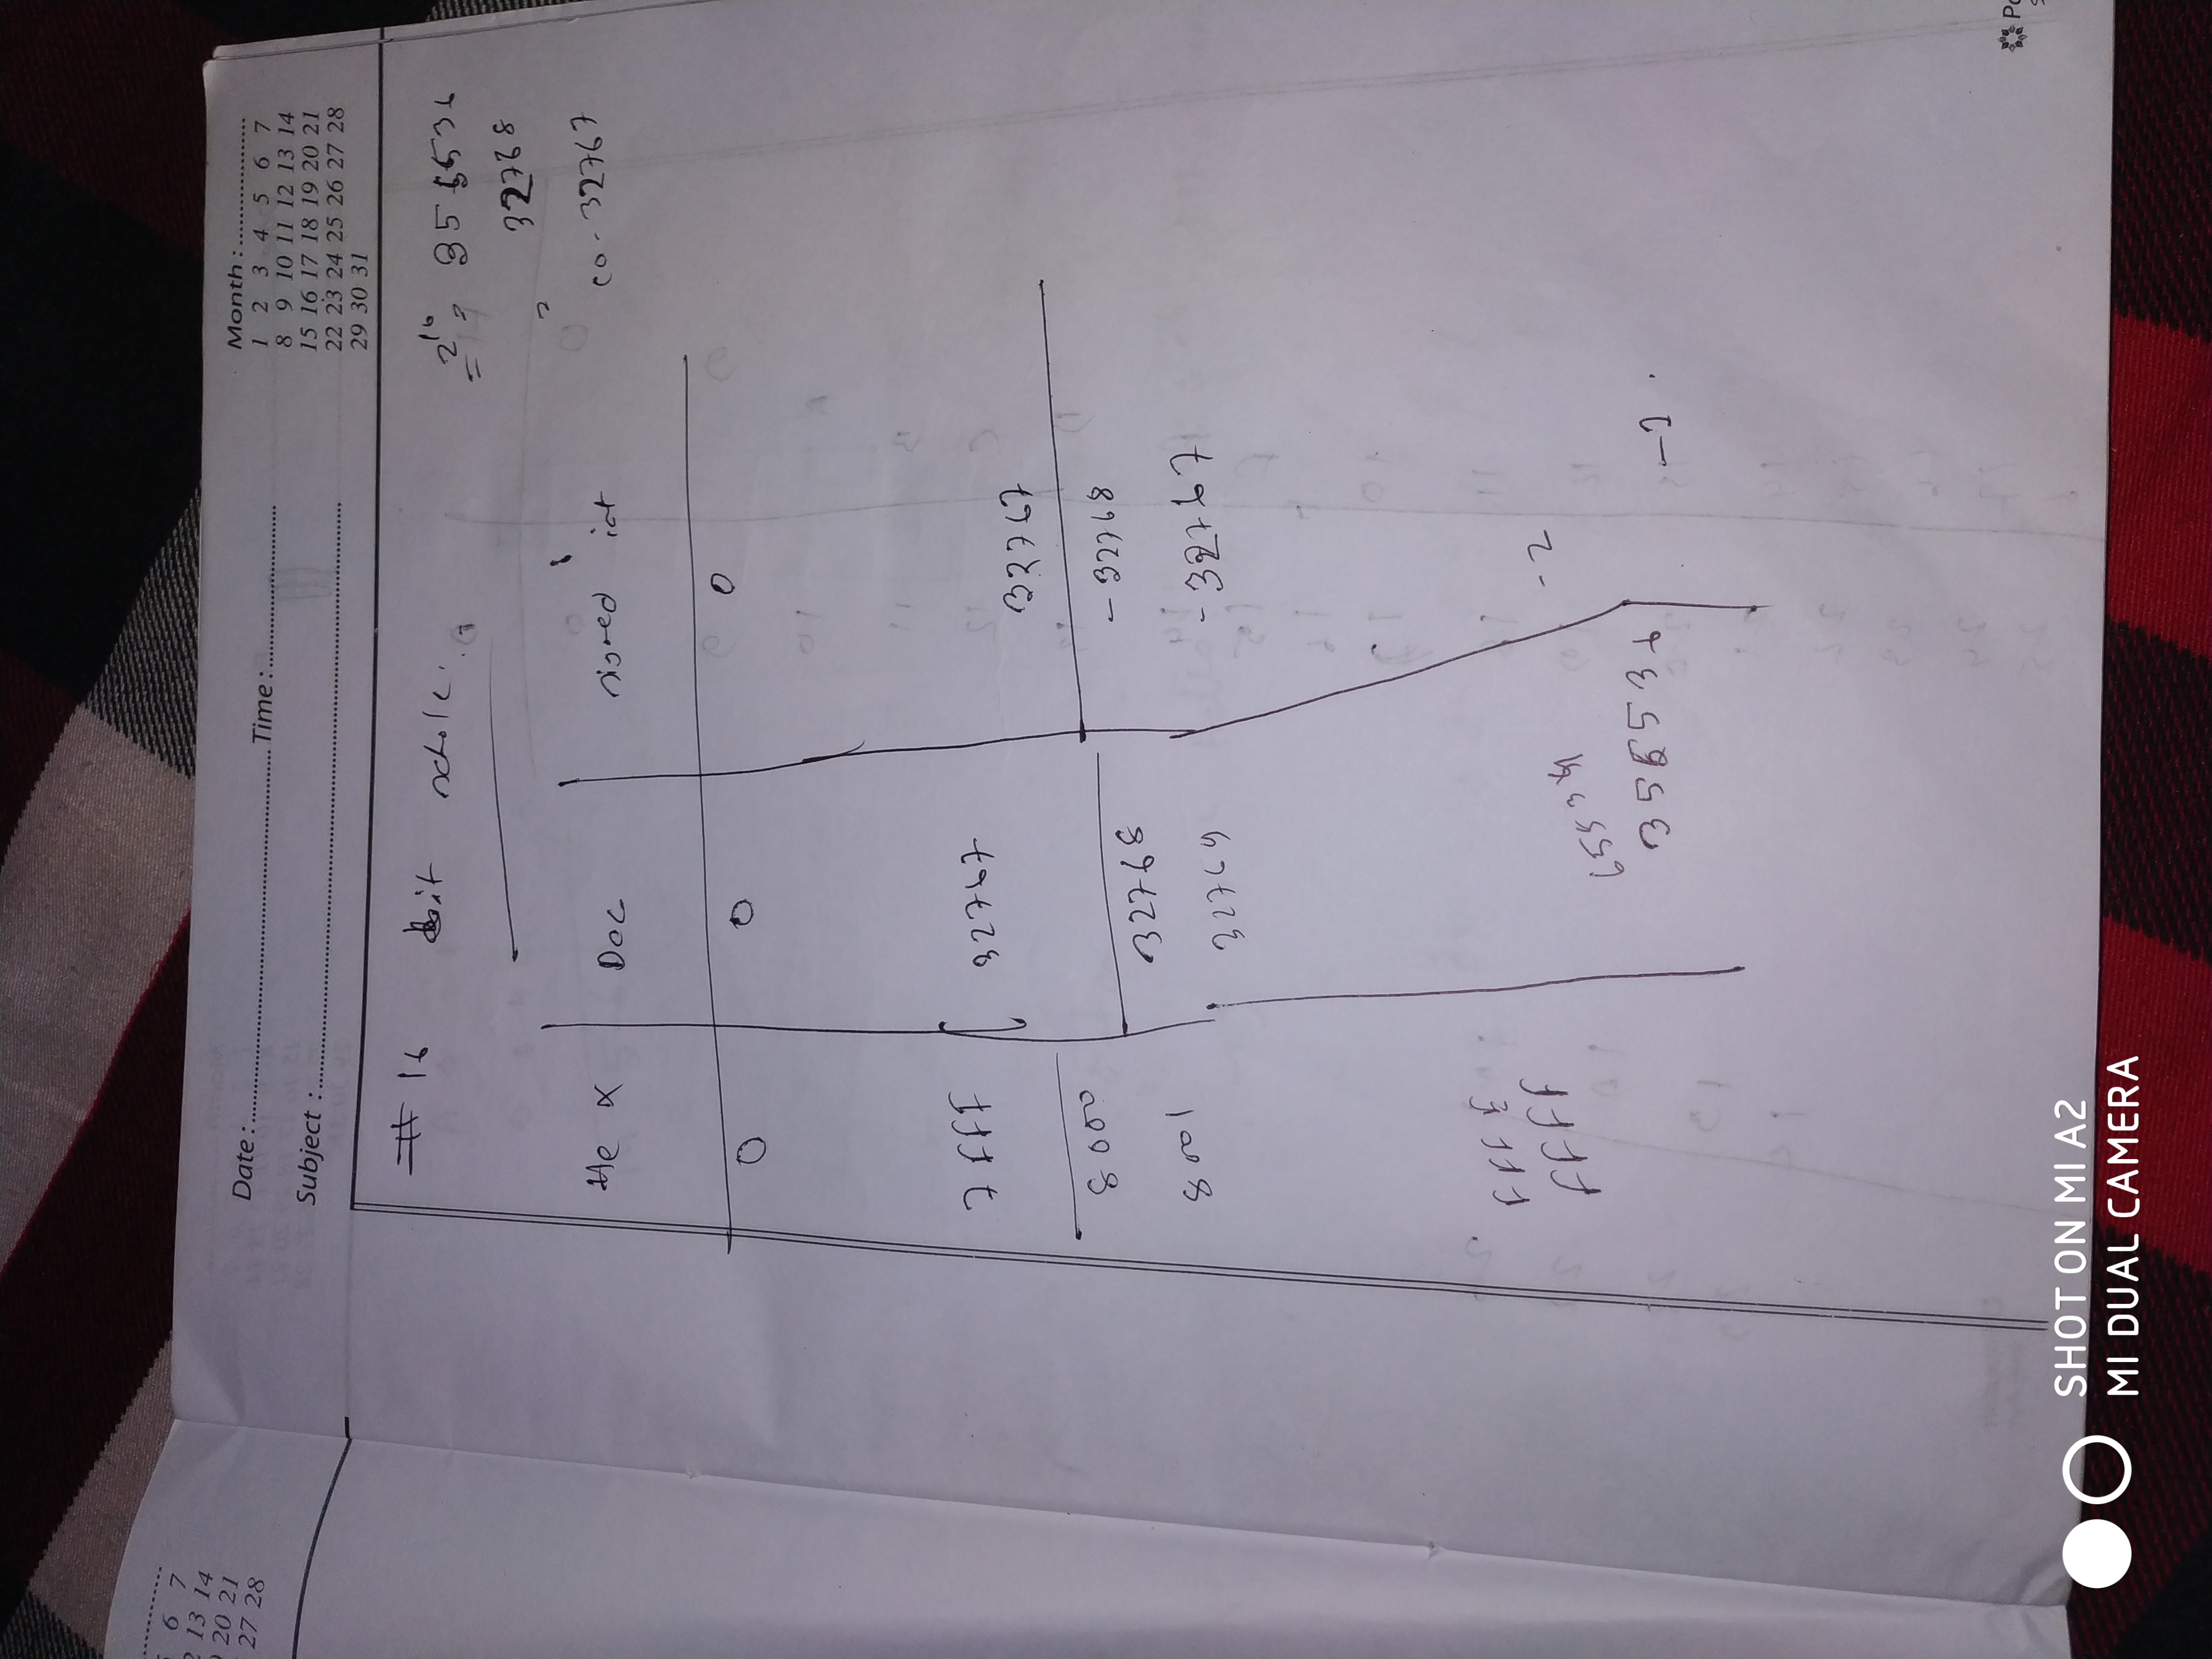 6 7
13 14
20 21
27 28
Date : Time :
Subject :
Month :
1 2 3 4 5 6 7
8 9 10 11 12 13 14
15 16 17 18 19 20 21
22 23 24 25 26 27 28
29 30 31
# 16 bit
= 2^16 =
32768
=
32767
Hex Dec signed int
0 0 0
7fff 32767 32767
8000 32768 -32768
8001 32769 -32767
-2
ffff -1
SHOT ON MI A2
MI DUAL CAMERA